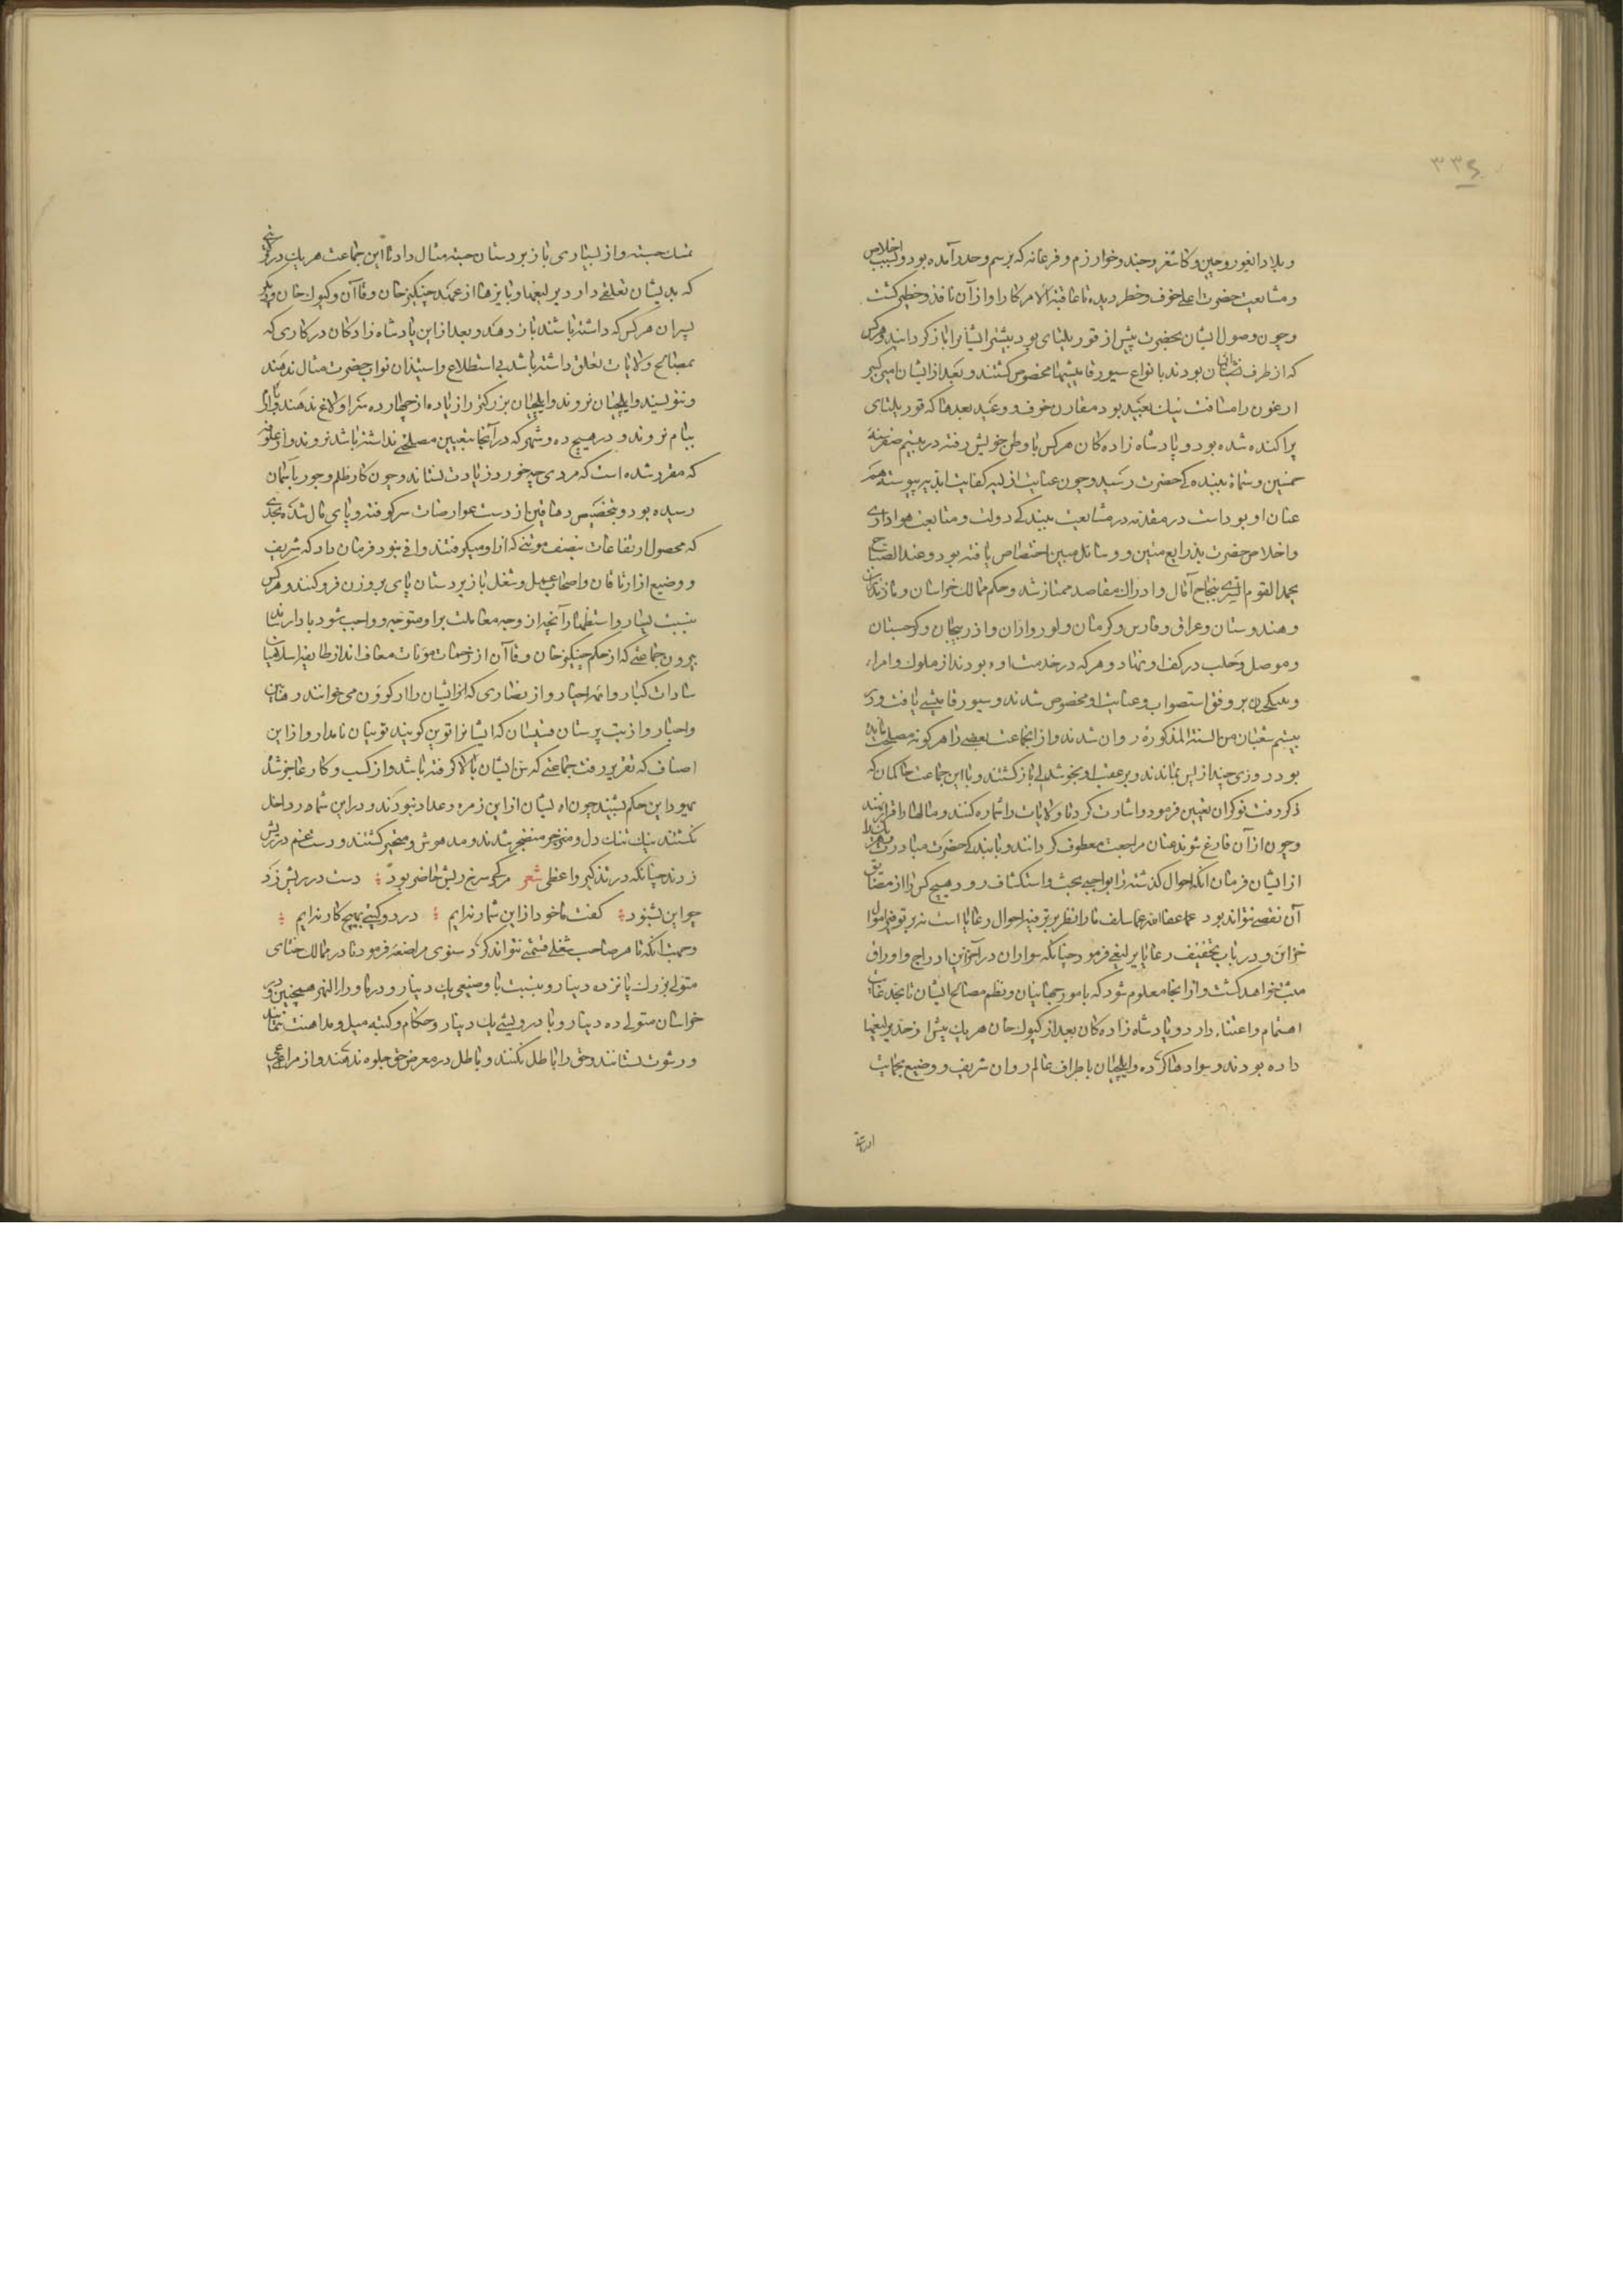 ۳۳۴
و بلاد ایغور و چین و کاشغر و جند و خوارزم و فرغانه که برسم وحدر آمده بود و بسبب اخلاص
و مشایعت حضرت اعلی خوف و خطر دیده تا عاقبة الامر کار او از آن نافذ و خطیر گشت
و چون وصول ایشان بحضرت پیش از قوریلتای بود بیشتر ایشانرا باز گردانیدند و هرکس
که از طرف نصبیان بودند بانواع سیورغامیشیها مخصوص گشتند و بعد از ایشان امیر کبیر
ارغون را مسافت نیک بعید بود مقارن خوف و وعید بعدها که قوریلتای
پراکنده شده بود و پادشاه زاده‌کان هرکس با وطن خویش رفته در بیستم صفر سنة
خمسین و ستمایة ببندگی حضرت رسید و چون عنایت ازلی کفایت ابدی پیوسته هم
عنان او بوداست در مقدمه در مشایعت ببندگی دولت و متابعت هواداری
و اخلاص حضرت بذرایع متین و وسائل مبین اختصاص یافته بود و عند الصباح
یحمد القوم السری بنجاح آمال و ادراک مقاصد ممتاز شد و حکم ممالک خراسان و مازندران
و هندوستان و عراق و فارس و کرمان و لور و اران و اذربیجان و گرجستان
و موصل و حلب در کف او نهاد و هر که در خدمت او بودند از ملوک و امراء
و بیتکچی بر وفق استصواب و عنایت او مخصوص شدند و سیورغامیشی یافت و در
بیستم شعبان من السنة المذکورة روان شدند و از انجماعت بعضی را هر گونه مصلحت مانده
بود روزی چند از پس بماندند و بر عقب او بخوشدلی باز گشتند و با این جماعت حاکمان که
ذکر رفت نوکران تعیین فرمود و اشارت کرد تا ولایات را شماره کنند و مالها را قرار نهند
و چون از آن فارغ شوند عنان مراجعت معطوف گردانند و با بندگی حضرت مبادرت و هر یک را
از ایشان فرمان انکه احوال گذشته را بواجبی بحث و استکشاف رود و هیچ کس را از مضایق
آن نقصی نتواند بود عما عفا الله عما سلف ما را نظر بر ترفیه احوال رعایا است نه بر توفیر اموال
خزاین و در باب تخفیف رعایا یرلیغی فرمود چنانکه سواد آن در آخر این ادراج و اوراق
مثبت خواهد گشت و از انجا معلوم شود که بامور جهانیان و نظم مصالح ایشان تا بچه غایت
اهتمام و اعتناء دارد و پادشاه زاده‌کان بعد از کیوک خان هر یک بیش از حد یرلیغها
داده بودند و سوادها کرده و ایلچیان باطراف عالم روان شریف و وضیع بحمایت
تمسک جسته و از بسیاری با زیر دستان جسته مثال داد تا این جماعت هر یک در
که بدیشان تعلق دارد یرلیغها و پایزها از عهد چنگیز خان و قاآن و کیوک خان و دیگر
پسران هر کس که داشته باشند باز دهند و بعد از این پادشاه زادگان در کاری که
بمصالح ولایات تعلق داشته باشد بی استطلاع و استیذان نواب حضرت مثال ندهند
و ننویسند و ایلچیان نروند و ایلچیان بزرکتر را زیاده از چهارده سر اولاغ ندهند و یام
بیام نروند و در هیچ ده و شهر که در آنجا بتعیین مصلحتی نداشته باشد نروند و از علوفه
که مقرر شده است که مردی چه خورد زیادت نستانند و چون کار ظلم و جور بآسمان
رسیده بود و بتخصیص دهاقین از دست عوارضات سر کوفته و پای مال شده بحدی
که محصول ارتفاعات بنصف مونتی که از او میگرفتند وافی نبود فرمان داد که شریف
و وضیع از ارتاقان و اصحاب عمل و شغل با زیر دستان پای بروزن فرو کنند و هر کس
بنسبت یسار و استظهار آنچه از وجه معاملت بر او متوجه و واجب شود بادا رساند
بیرون جماعتی که از حکم چنگیز خان و قاآن از زحمات مؤنات معاف اند از طایفه اسلامیان
سادات کبار و ائمه اخیار و از نصاری که ایشان را ارکوون می خوانند رهابین
و احبار و از بت پرستان قسیسان که ایشانرا توین گویند توینان نامدار و از این
اصناف که تقریر رفت جماعتی که سن ایشان بالا گرفته باشد و از کسب و کار عاجز شده
یهود این حکم بشنیدند چون ایشان از این زمره و عداد نبودند و در این شماره داخل
نگشتند نیک تنگ دل و منزجر منضجر شدند و مدهوش و متحیر گشتند و دست غم در ریش
زدند چنانکه در تذکیر واعظی شعر مرکجی سرخ ریش حاضر بود دست در ریش زد
چو این بشنود گفت ما خود از این شمار نه‌ایم در دو گیتی بهیچ کار نه‌ایم
و جهت انکه تا هر صاحب شغلی قسمتی نتواند کرد سنوی مراضعه فرمود تا در ممالک ختای
متولی بزرگ پانزده دینار و بنسبت با وضیعی یک دینار و در ماوراءالنهر همچنین و در
خراسان متولی ده دینار و با درویشی یک دینار و حکام و کتبه میل و مداهنت ننمایند
و رشوت نستانند و حق را باطل نکنند و باطل در معرض حق جلوه ندهند و از مراعی